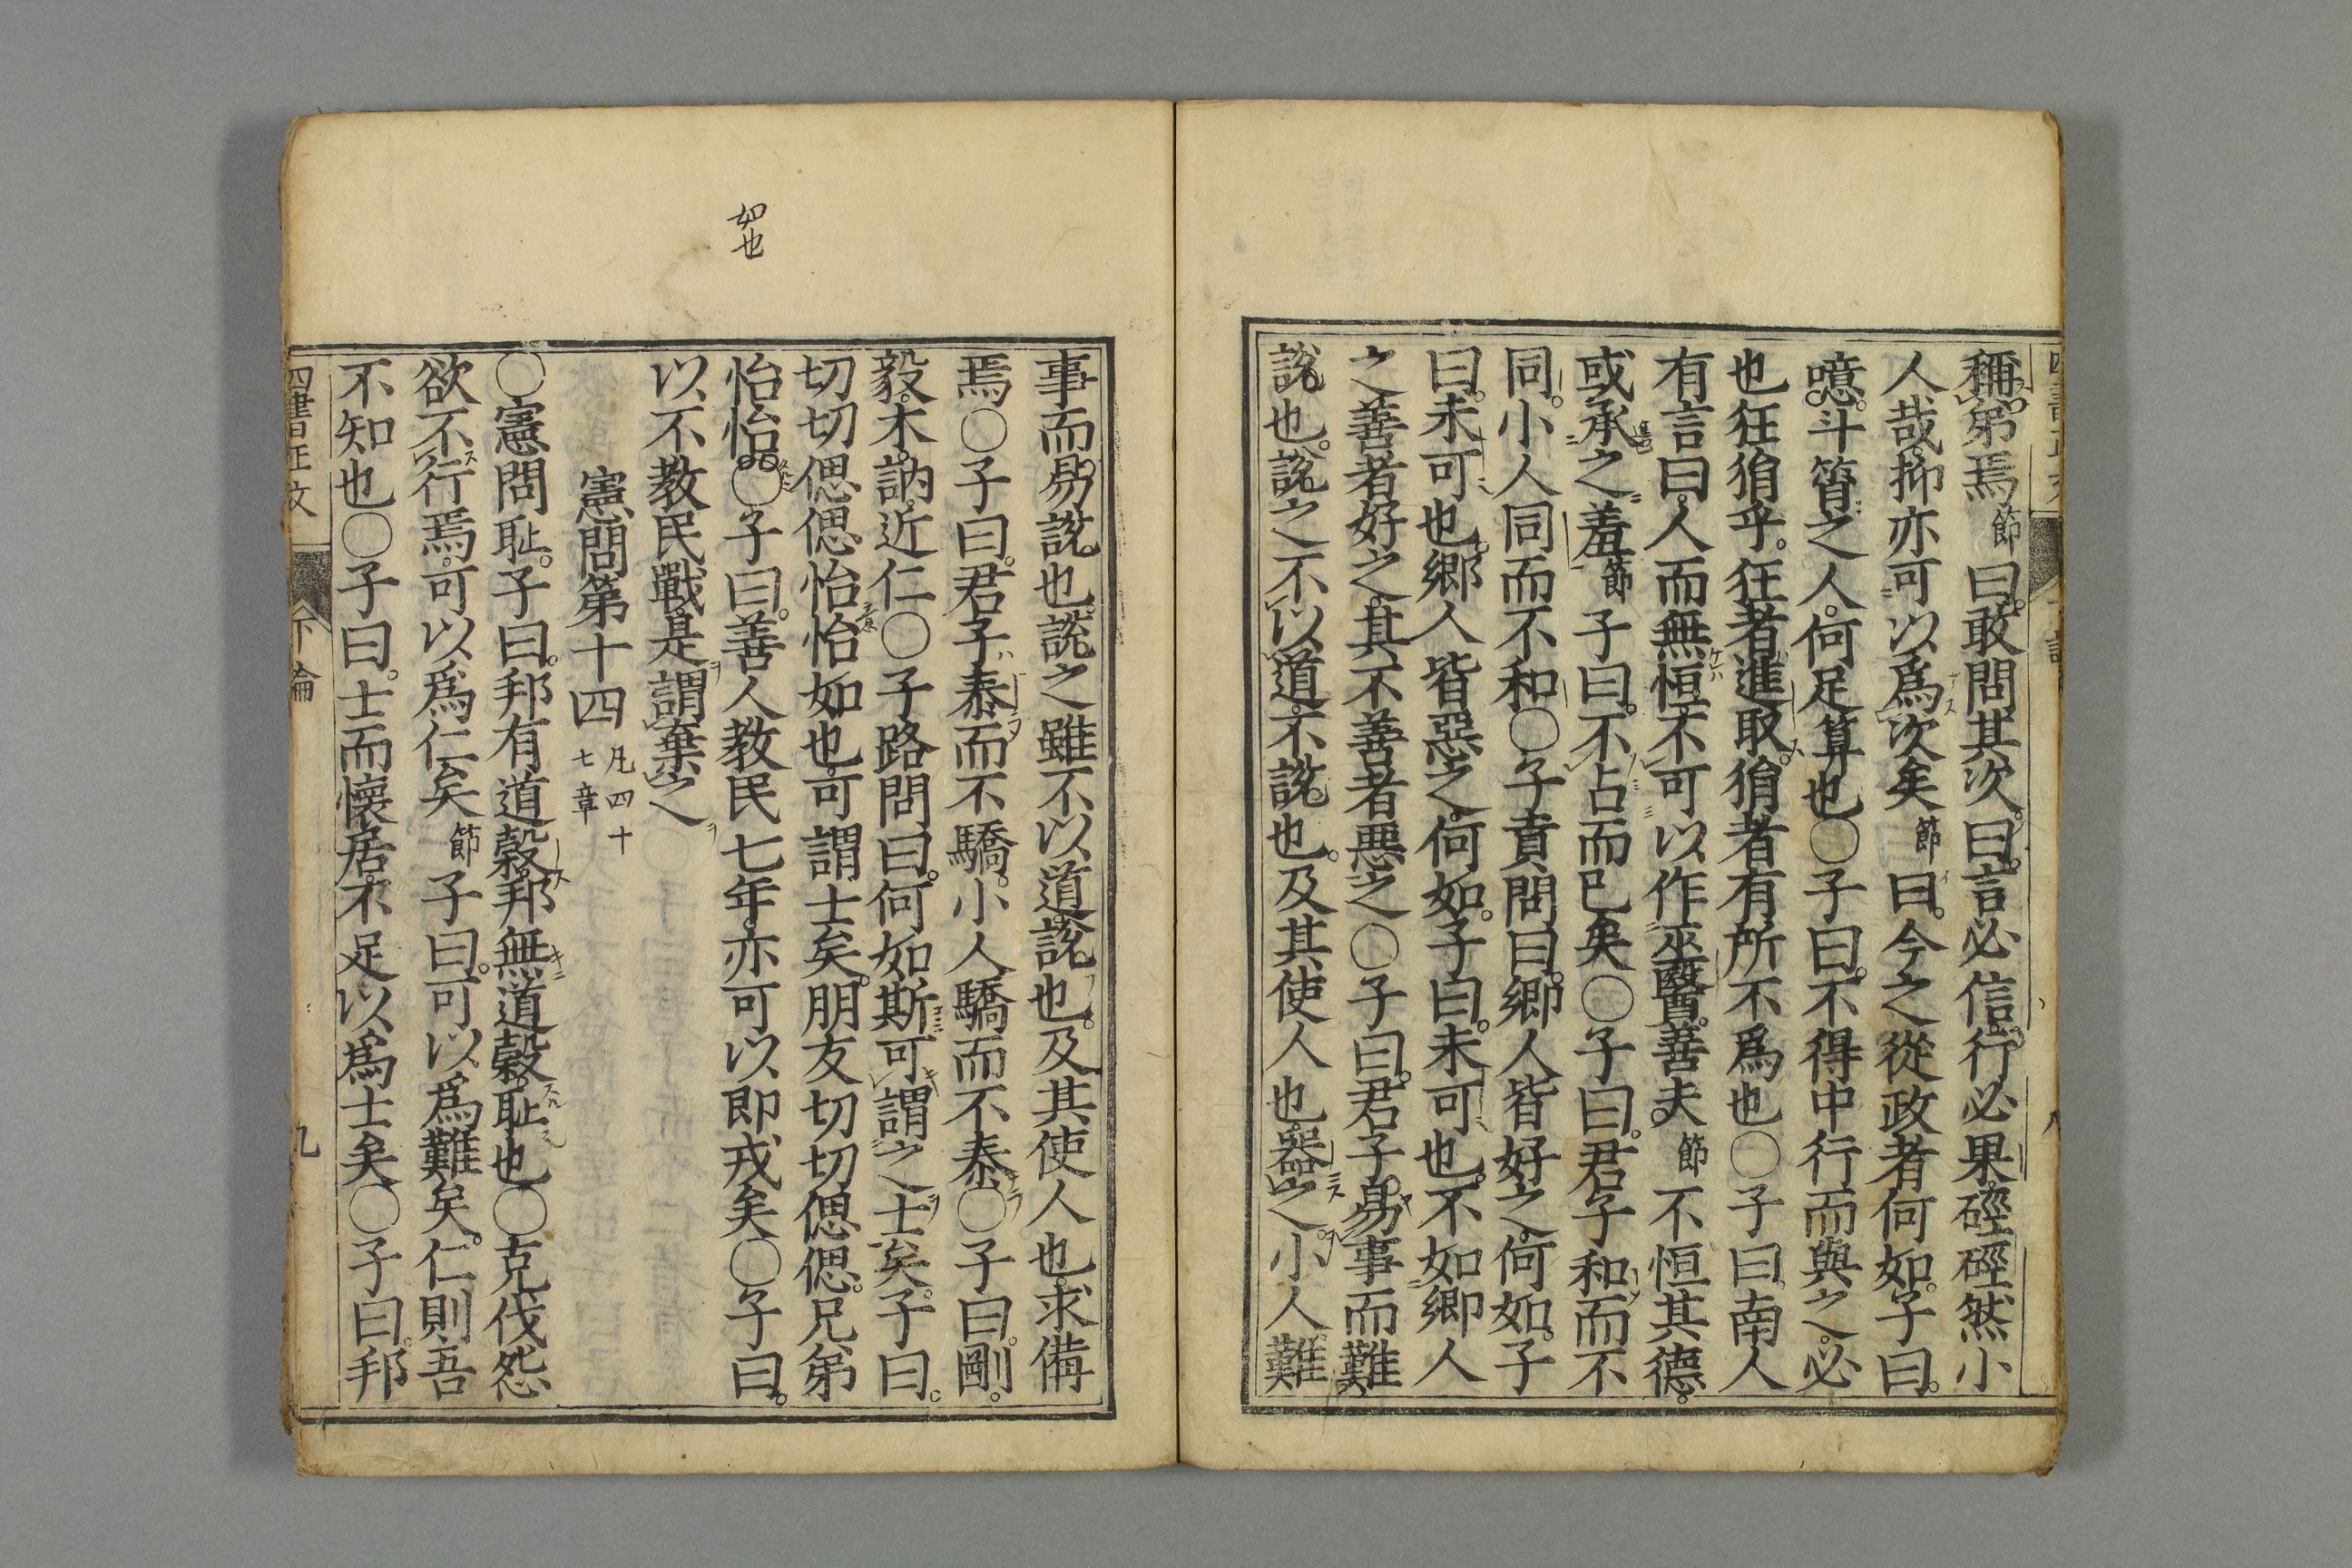 稱弟焉節曰敢問其次曰言必信行必果硜硜然小
人哉抑亦可以爲次矣節曰今之從政者何如子曰
噫斗筲之人何足算也〇子曰不得中行而與之必
也狂狷乎狂者進取狷者有所不爲也〇子曰南人
有言曰人而無恒不可以作巫醫善夫節不恒其德
或承之羞節子曰不占而已矣〇子曰君子和而不
同小人同而不和〇子貢問曰鄉人皆好之何如子
曰未可也鄉人皆惡之何如子曰未可也不如鄉人
之善者好之其不善者惡之〇子曰君子易事而難
說也說之不以道不說也及其使人也器之小人難
如也
事而易說也說之雖不以道說也及其使人也求備
焉〇子曰君子泰而不驕小人驕而不泰〇子曰剛
毅木訥近仁〇子路問曰何如斯可謂之士矣子曰
切切偲偲怡怡如也可謂士矣朋友切切偲偲兄弟
怡怡〇子曰善人教民七年亦可以即戎矣〇子曰
以不教民戰是謂棄之
憲問第十四 凡四十
七章
〇憲問恥子曰邦有道穀邦無道穀恥也〇克伐怨
欲不行焉可以爲仁矣節子曰可以爲難矣仁則吾
不知也〇子曰士而懷居不足以爲士矣〇子曰邦
四書正文 下論 九